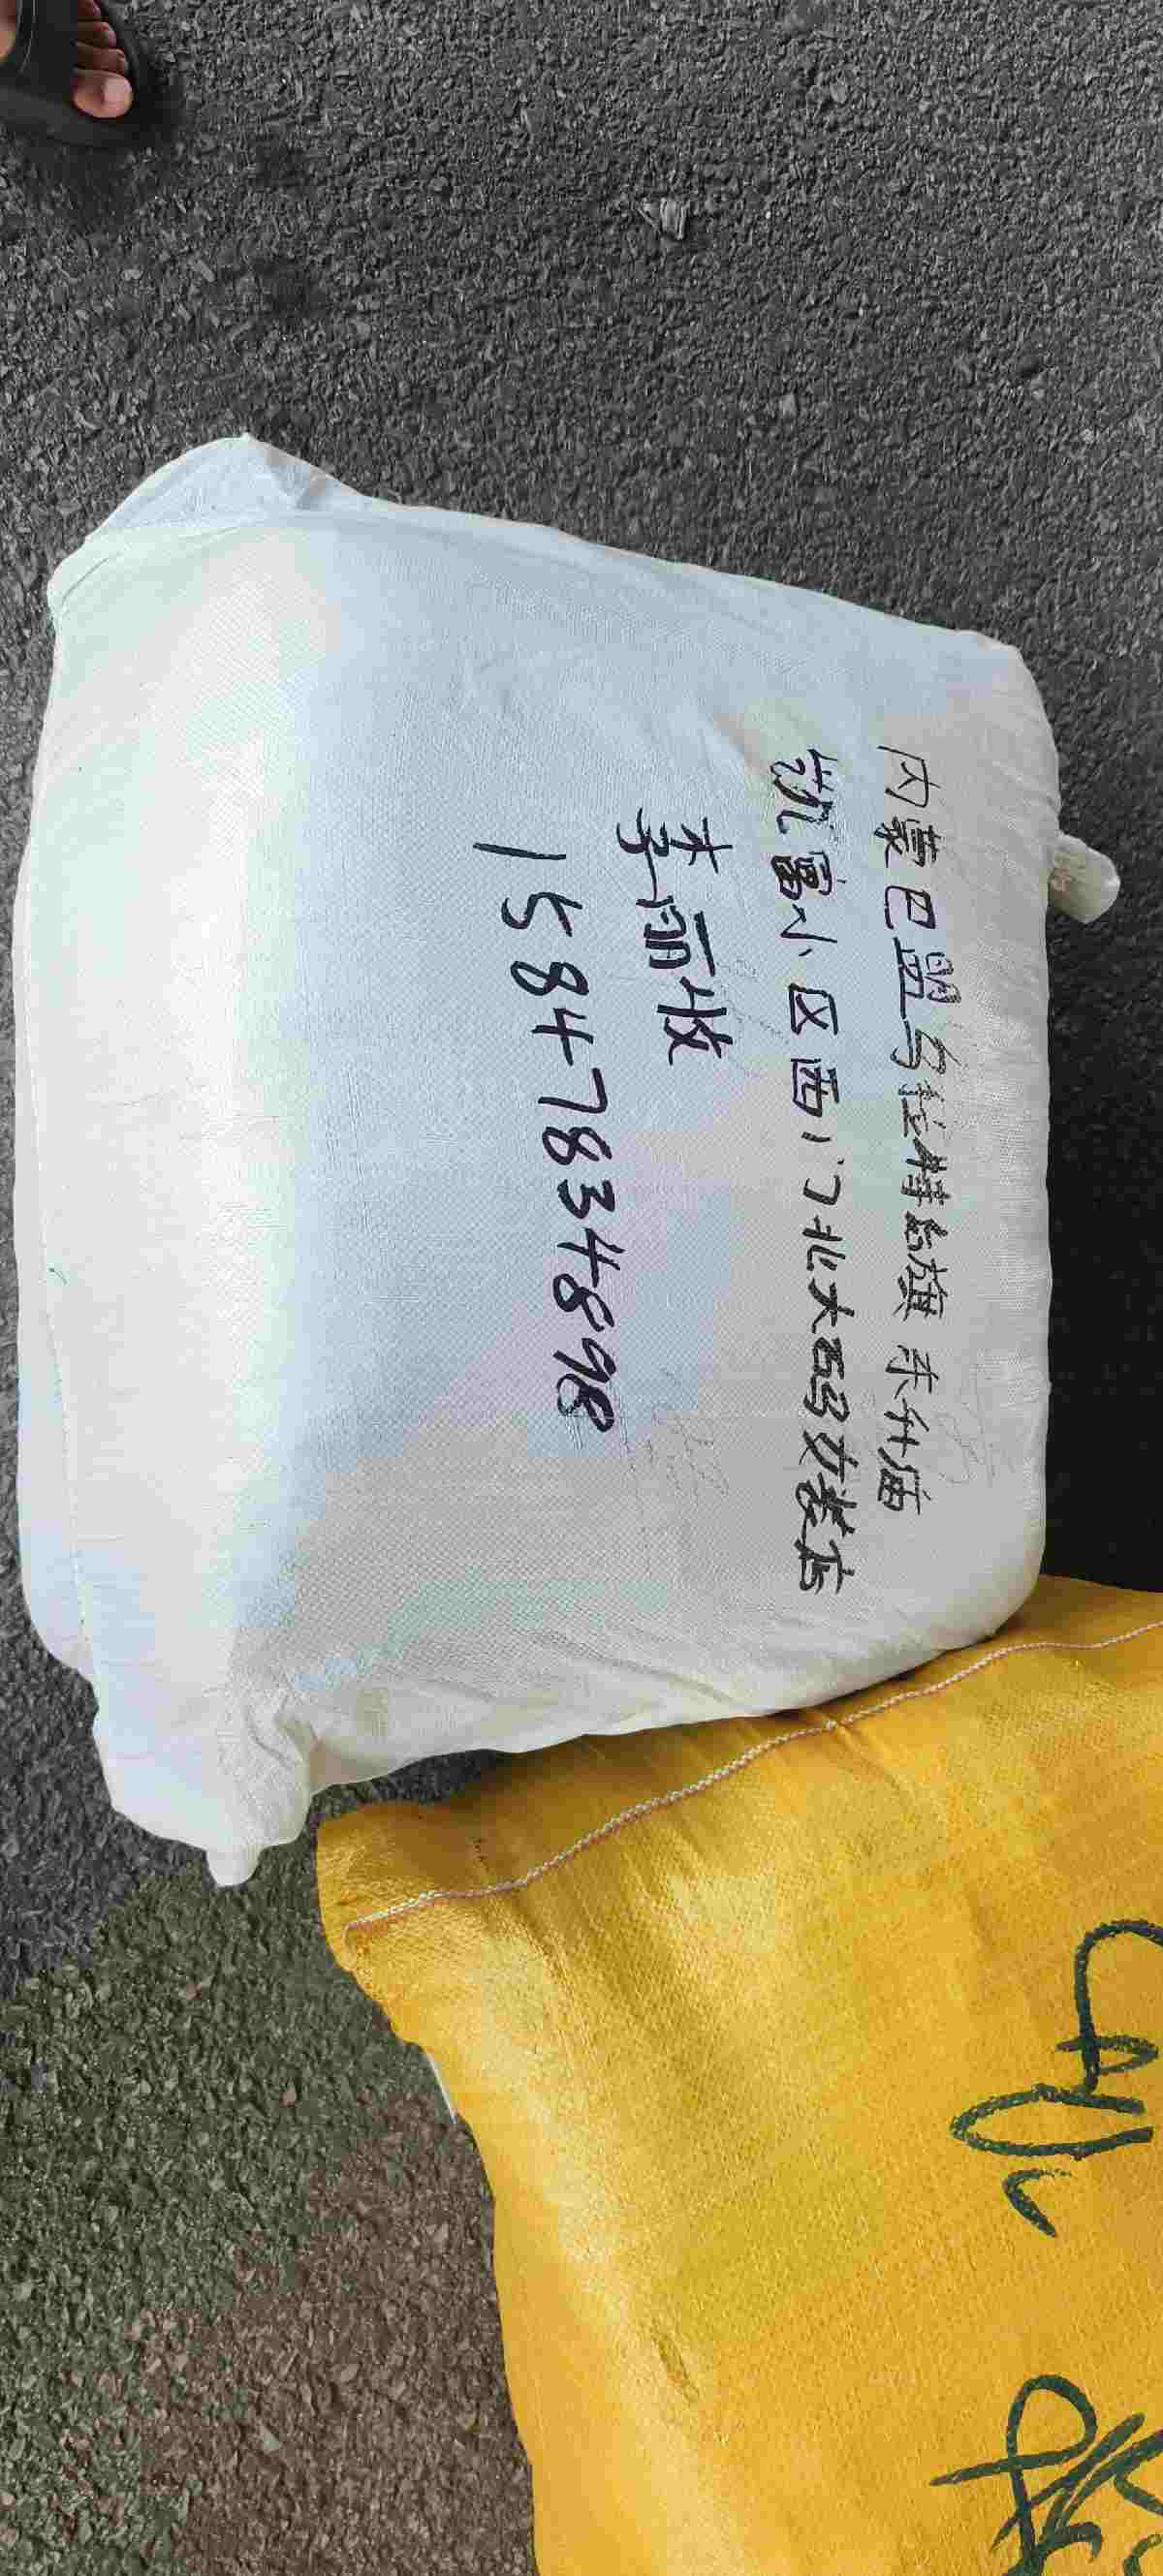 内蒙巴盟乌拉特后旗东升庙
凯富小区西门北大码女装店
李丽收
15847834898